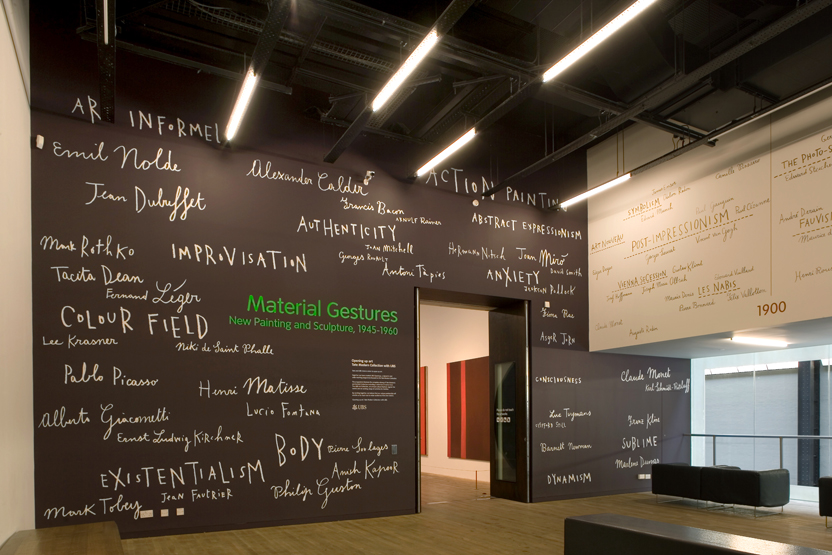 AR INFORMEL
ACTION PAINTIN
Emil Nolde
Alexander Calder
Jean Dubuffet
Francis Bacon
ARNULF Rainer
ABSTRACT EXPRESSIONISM
AUTHENTICITY
Mark Rothko
IMPROVISATION
JOAN Mitchell
Hermann Nitsch
Joan Miró
David Smith
Tacita Dean
Antoni Tàpies
ANXIETY
Jackson Pollock
Fernand Léger
Material Gestures
New Painting and Sculpture, 1945-1960
COLOUR FIELD
Lee Krasner
Niki de Saint Phalle
Asger Jorn
Pablo Picasso
Henri Matisse
CONSCIOUSNESS
Claude Monet
Karl Schmidt-Rottluff
Alberto Giacometti
Lucio Fontana
Luc Tuymans
Franz Kline
Ernst Ludwig Kirchner
BODY
Pierre Soulages
Barnett Newman
SUBLIME
EXISTENTIALISM
Anish Kapoor
Marlene Dumas
JEAN FAUTRIER
Philip Guston
DYNAMISM
Mark Tobey
Opening up art
Tate Modern Collection with UBS
UBS
THE PHOTO-S
SYMBOLISM
ART NOUVEAU
POST-IMPRESSIONISM
Paul Cézanne
Vincent van Gogh
FAUVIS
VIENNA SECESSION
Gustav Klimt
LES NABIS
Pierre Bonnard
1900